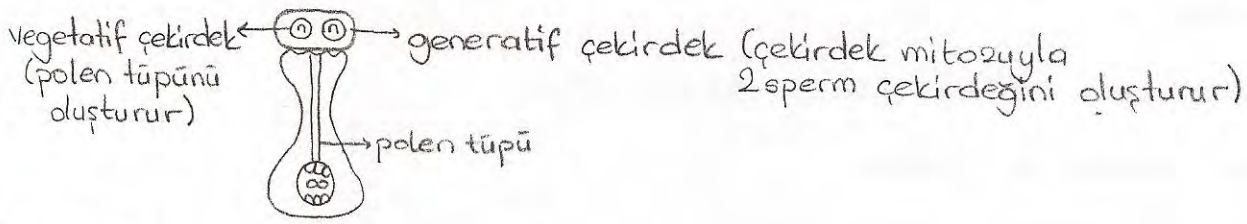 vegetatif çekirdek
(polen tüpünü
oluşturur)
n n
generatif çekirdek (çekirdek mitozuyla
2 sperm çekirdeğini oluşturur)
polen tüpü